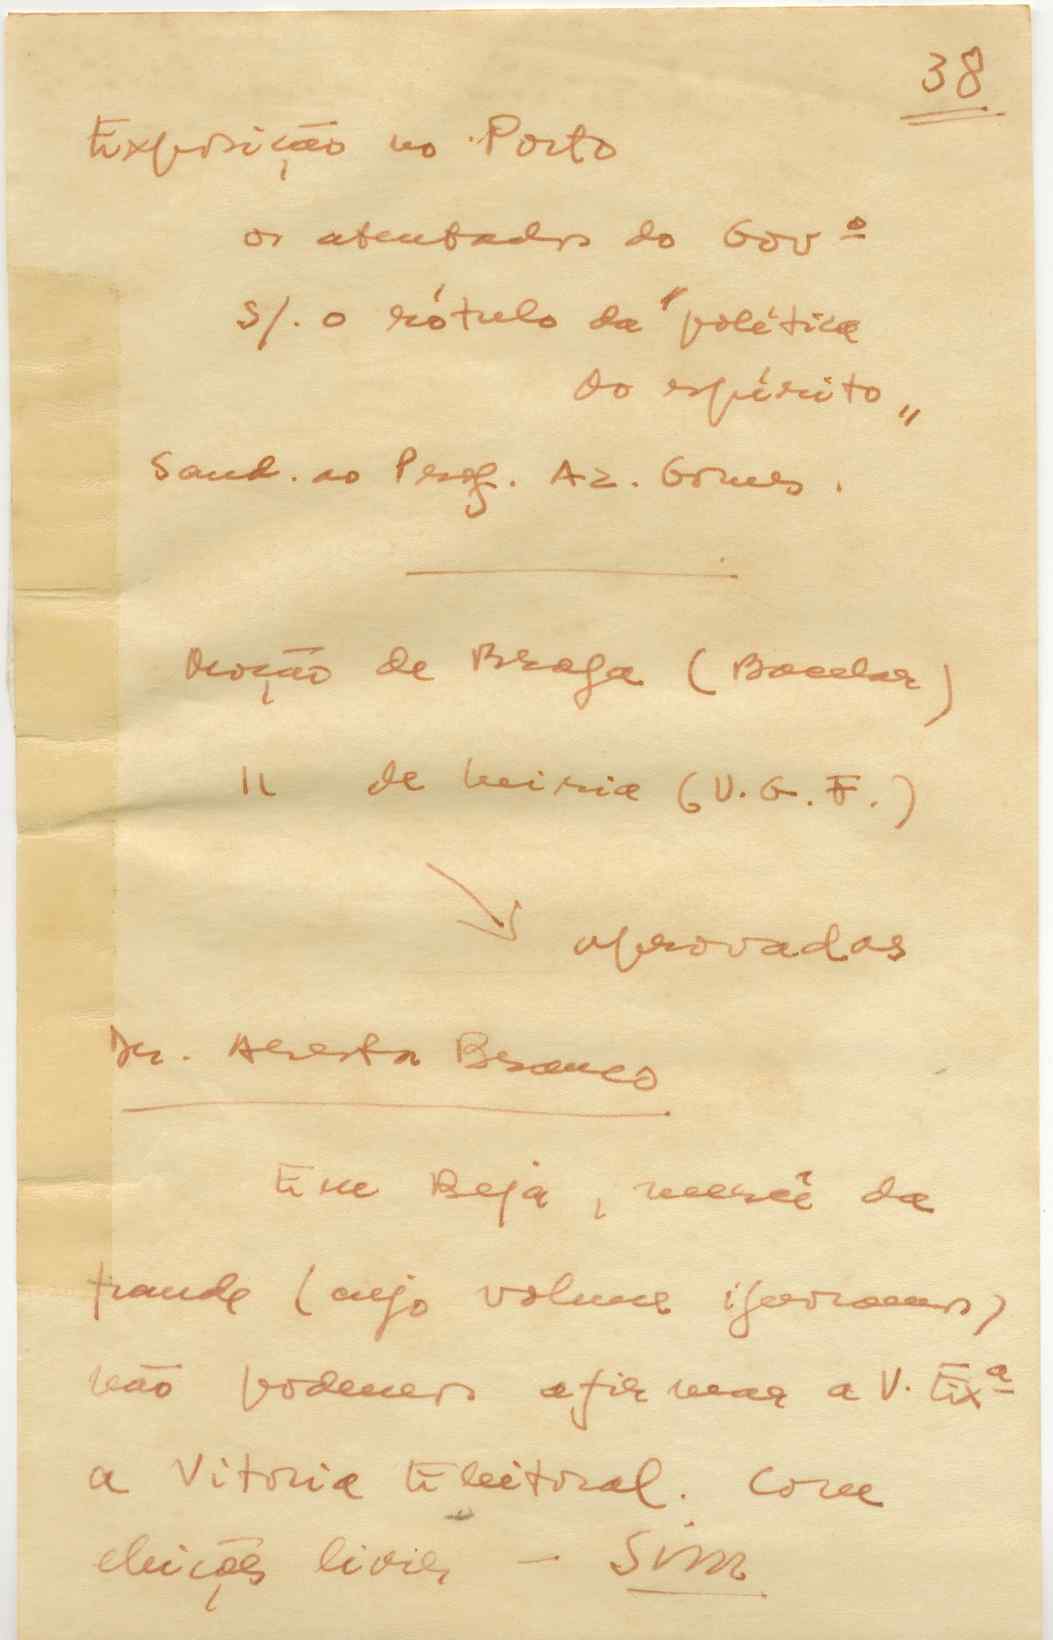 38
Exposição no Porto
os atentados do Govº
s/. o rótulo da "política
do espírito"
Saud. ao Prof. Az. Gomes.
Moção de Braga (Bacelar)
" de Leiria (V. G. F.)
aprovadas
Dr. Aresta Branco
Em Beja, mercê da
fraude (cujo volume ignoramos)
não podemos afirmar a V. Exª
a Vitoria Eleitoral. Com
eleições livres - Sim